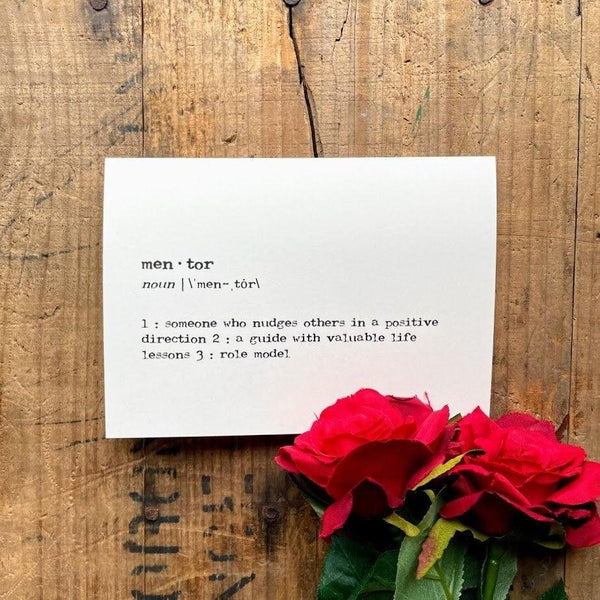 men·tor
noun | \ˈmen-ˌtȯr\
1 : someone who nudges others in a positive
direction 2 : a guide with valuable life
lessons 3 : role model